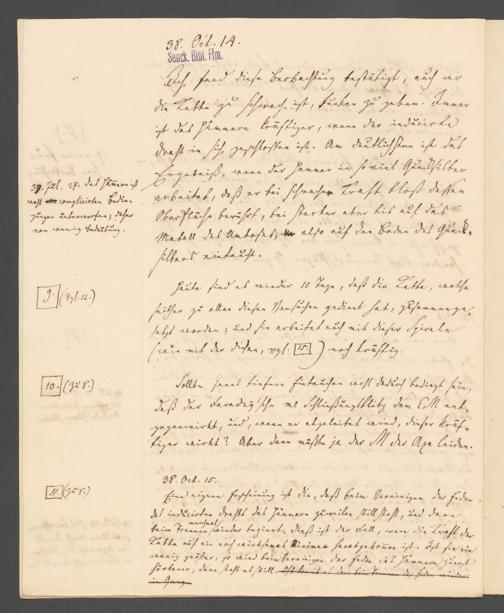 38. Oct. 14.
Senck. Bibl. Ffm.
Ich fand diese Beobachtung bestätigt, auch wo
die Kette zu schwach ist, Funken zu geben. Immer
ist das Hämmern kräftiger, wenn der inducirte
Draht in sich geschlossen ist. Am deutlichsten ist das
Ergebniß, wenn der Hammer in soviel Quecksilber
arbeitet, daß er bei schwacher Kraft bloß dessen
Oberfläche berührt, bei starker aber bis auf das
Metall des Ambosses, also auf den Boden des Queck-
silbers eintaucht.
39. Jul. 27. das Hämmern ist
wohl complicirten Bedin-
gungen unterworfen, daher
von wenig Bedeutung.
9. (Vgl. 12.)
Heute sind es wieder 10 Tage, daß die Kette, welche
seither zu allen diesen Versuchen gedient hat, zusammenge-
setzt worden; und sie arbeitet auch mit dieser Spirale
(wie mit der dicken, vgl. 15.) noch kräftig.
10. (Zu 8.)
Sollte jenes tiefere Eintauchen nicht dadurch bedingt sein,
daß der Faraday'sche Schließungsblitz dem EM ent-
gegenwirkt, und, wenn er abgeleitet wird, dieser kräf-
tiger wirkt? Aber dann müßte ja der M der Axe leiden.
38. Oct. 15.
11. (Zu 8.)
Eine eigene Erscheinung ist die, daß beim Vereinigen der Enden
des inducirten Drahts das Hämmern zuweilen still steht, und dann
beim Trennen manchmal wieder beginnt. Dieß ist der Fall, wenn die Kraft der
Kette auf ein noch herabgekommen ist. Ist sie ein
wenig größer, so wird beim Vereinigen der Enden das Hämmern zuerst
schwächer, dann steht es still.